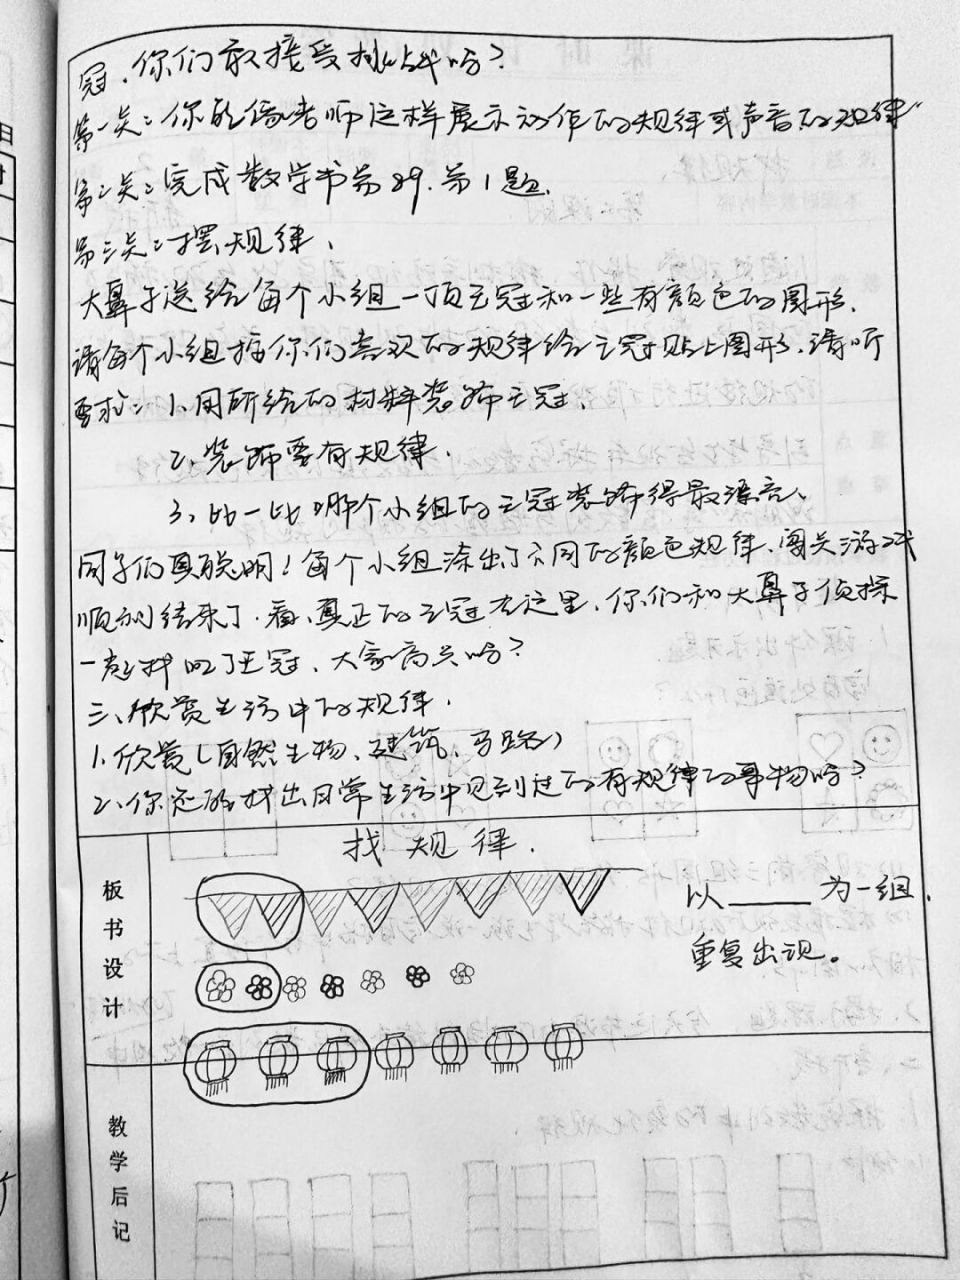 冠,你们敢接受挑战吗?
第一关:你能像老师这样展示动作的规律或声音的规律
第二关:完成数学书第89.第1题.
第三关:摆规律.
大鼻子送给每个小组一顶王冠和一些有颜色的图形.
请每个小组按你们喜欢的规律给王冠贴上图形.请听
要求:1、用所给的材料装饰王冠.
2、装饰要有规律.
3、比一比哪个小组的王冠装饰得最漂亮、
同学们真聪明!每个小组涂出了不同的颜色规律.闯关游戏
顺利结束了.看,真正的王冠在这里.你们和大鼻子侦探
一起找回了王冠、大家高兴吗?
三、欣赏生活中的规律.
1.欣赏(自然生物、建筑、马路)
2、你还能找出日常生活中见到过的有规律的事物吗?
板书设计
找规律.
以____为一组.
重复出现。
教学后记